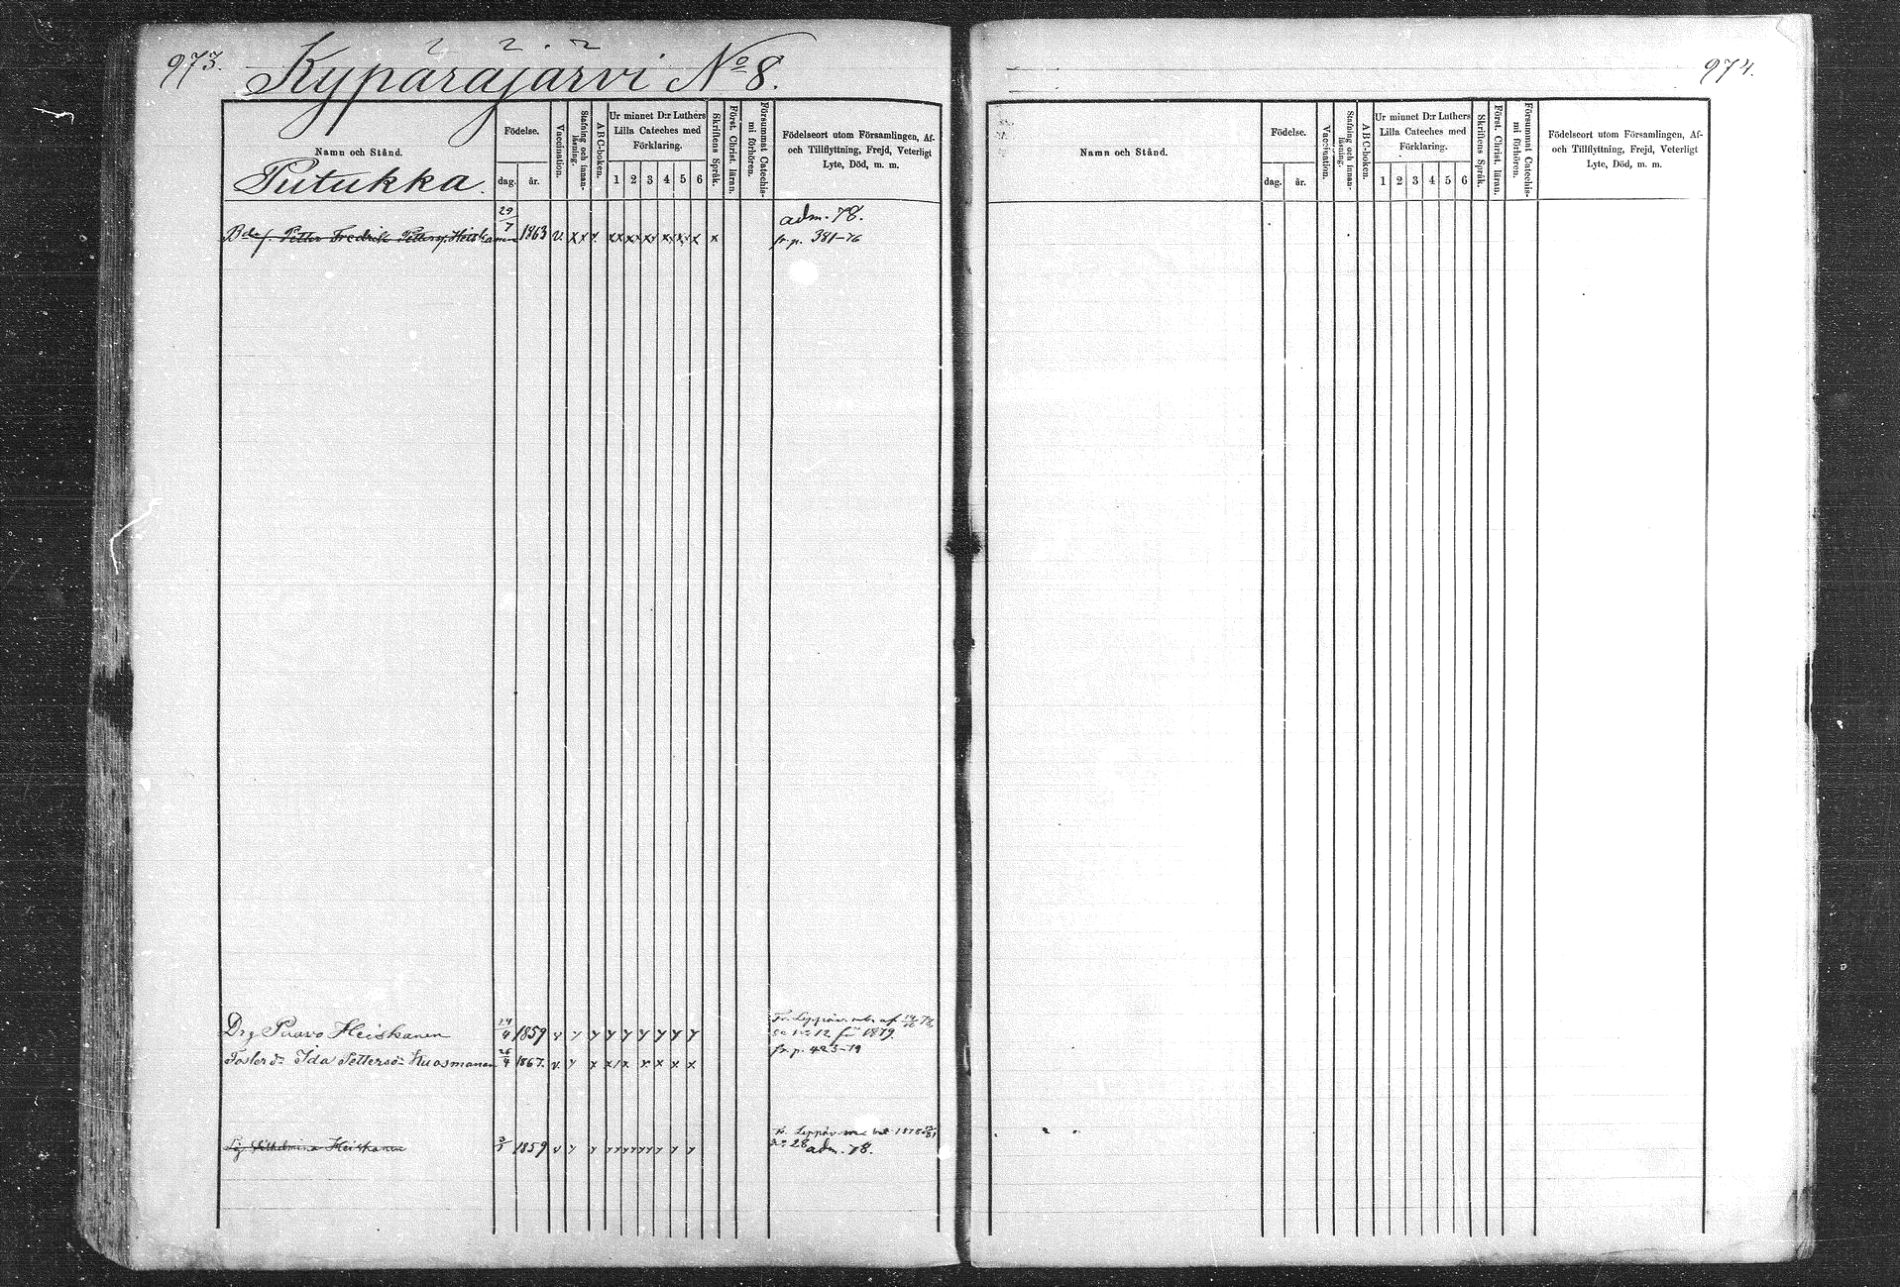 973.
Kypäräjärvi No 8.
Namn och Stånd.
Födelse.
dag.
år.
Vaccination.
Stafning och innanläsning.
ABC-boken.
Ur minnet D:r Luthers
Lilla Cateches med
Förklaring.
1 2 3 4 5 6
Skriftens Språk.
Först. Christ. läran.
Försummat Catechismi förhören.
Födelseort utom Församlingen, Af-
och Tillflyttning, Frejd, Veterligt
Lyte, Död, m. m.
Putukka.
adm. 78.
Petter Fredrik Petterss. Heiskanen 29/7 1863 v. x x x x x x x x x x fr. p. 381-76
Drg Paavo Heiskanen 4 1859 v y y y y y y y y y
12 för 1879.
Ida Kuosmanen 26/4 1867. v. y x x x x x x x fr. p. 423-79
Wilhelmina Heiskanen 1859 v y y y y y y y y y
28 adm. 78.
974.
Namn och Stånd.
Födelse.
dag.
år.
Vaccination.
Stafning och innanläsning.
ABC-boken.
Ur minnet D:r Luthers
Lilla Cateches med
Förklaring.
1 2 3 4 5 6
Skriftens Språk.
Först. Christ. läran.
Försummat Catechismi förhören.
Födelseort utom Församlingen, Af-
och Tillflyttning, Frejd, Veterligt
Lyte, Död, m. m.